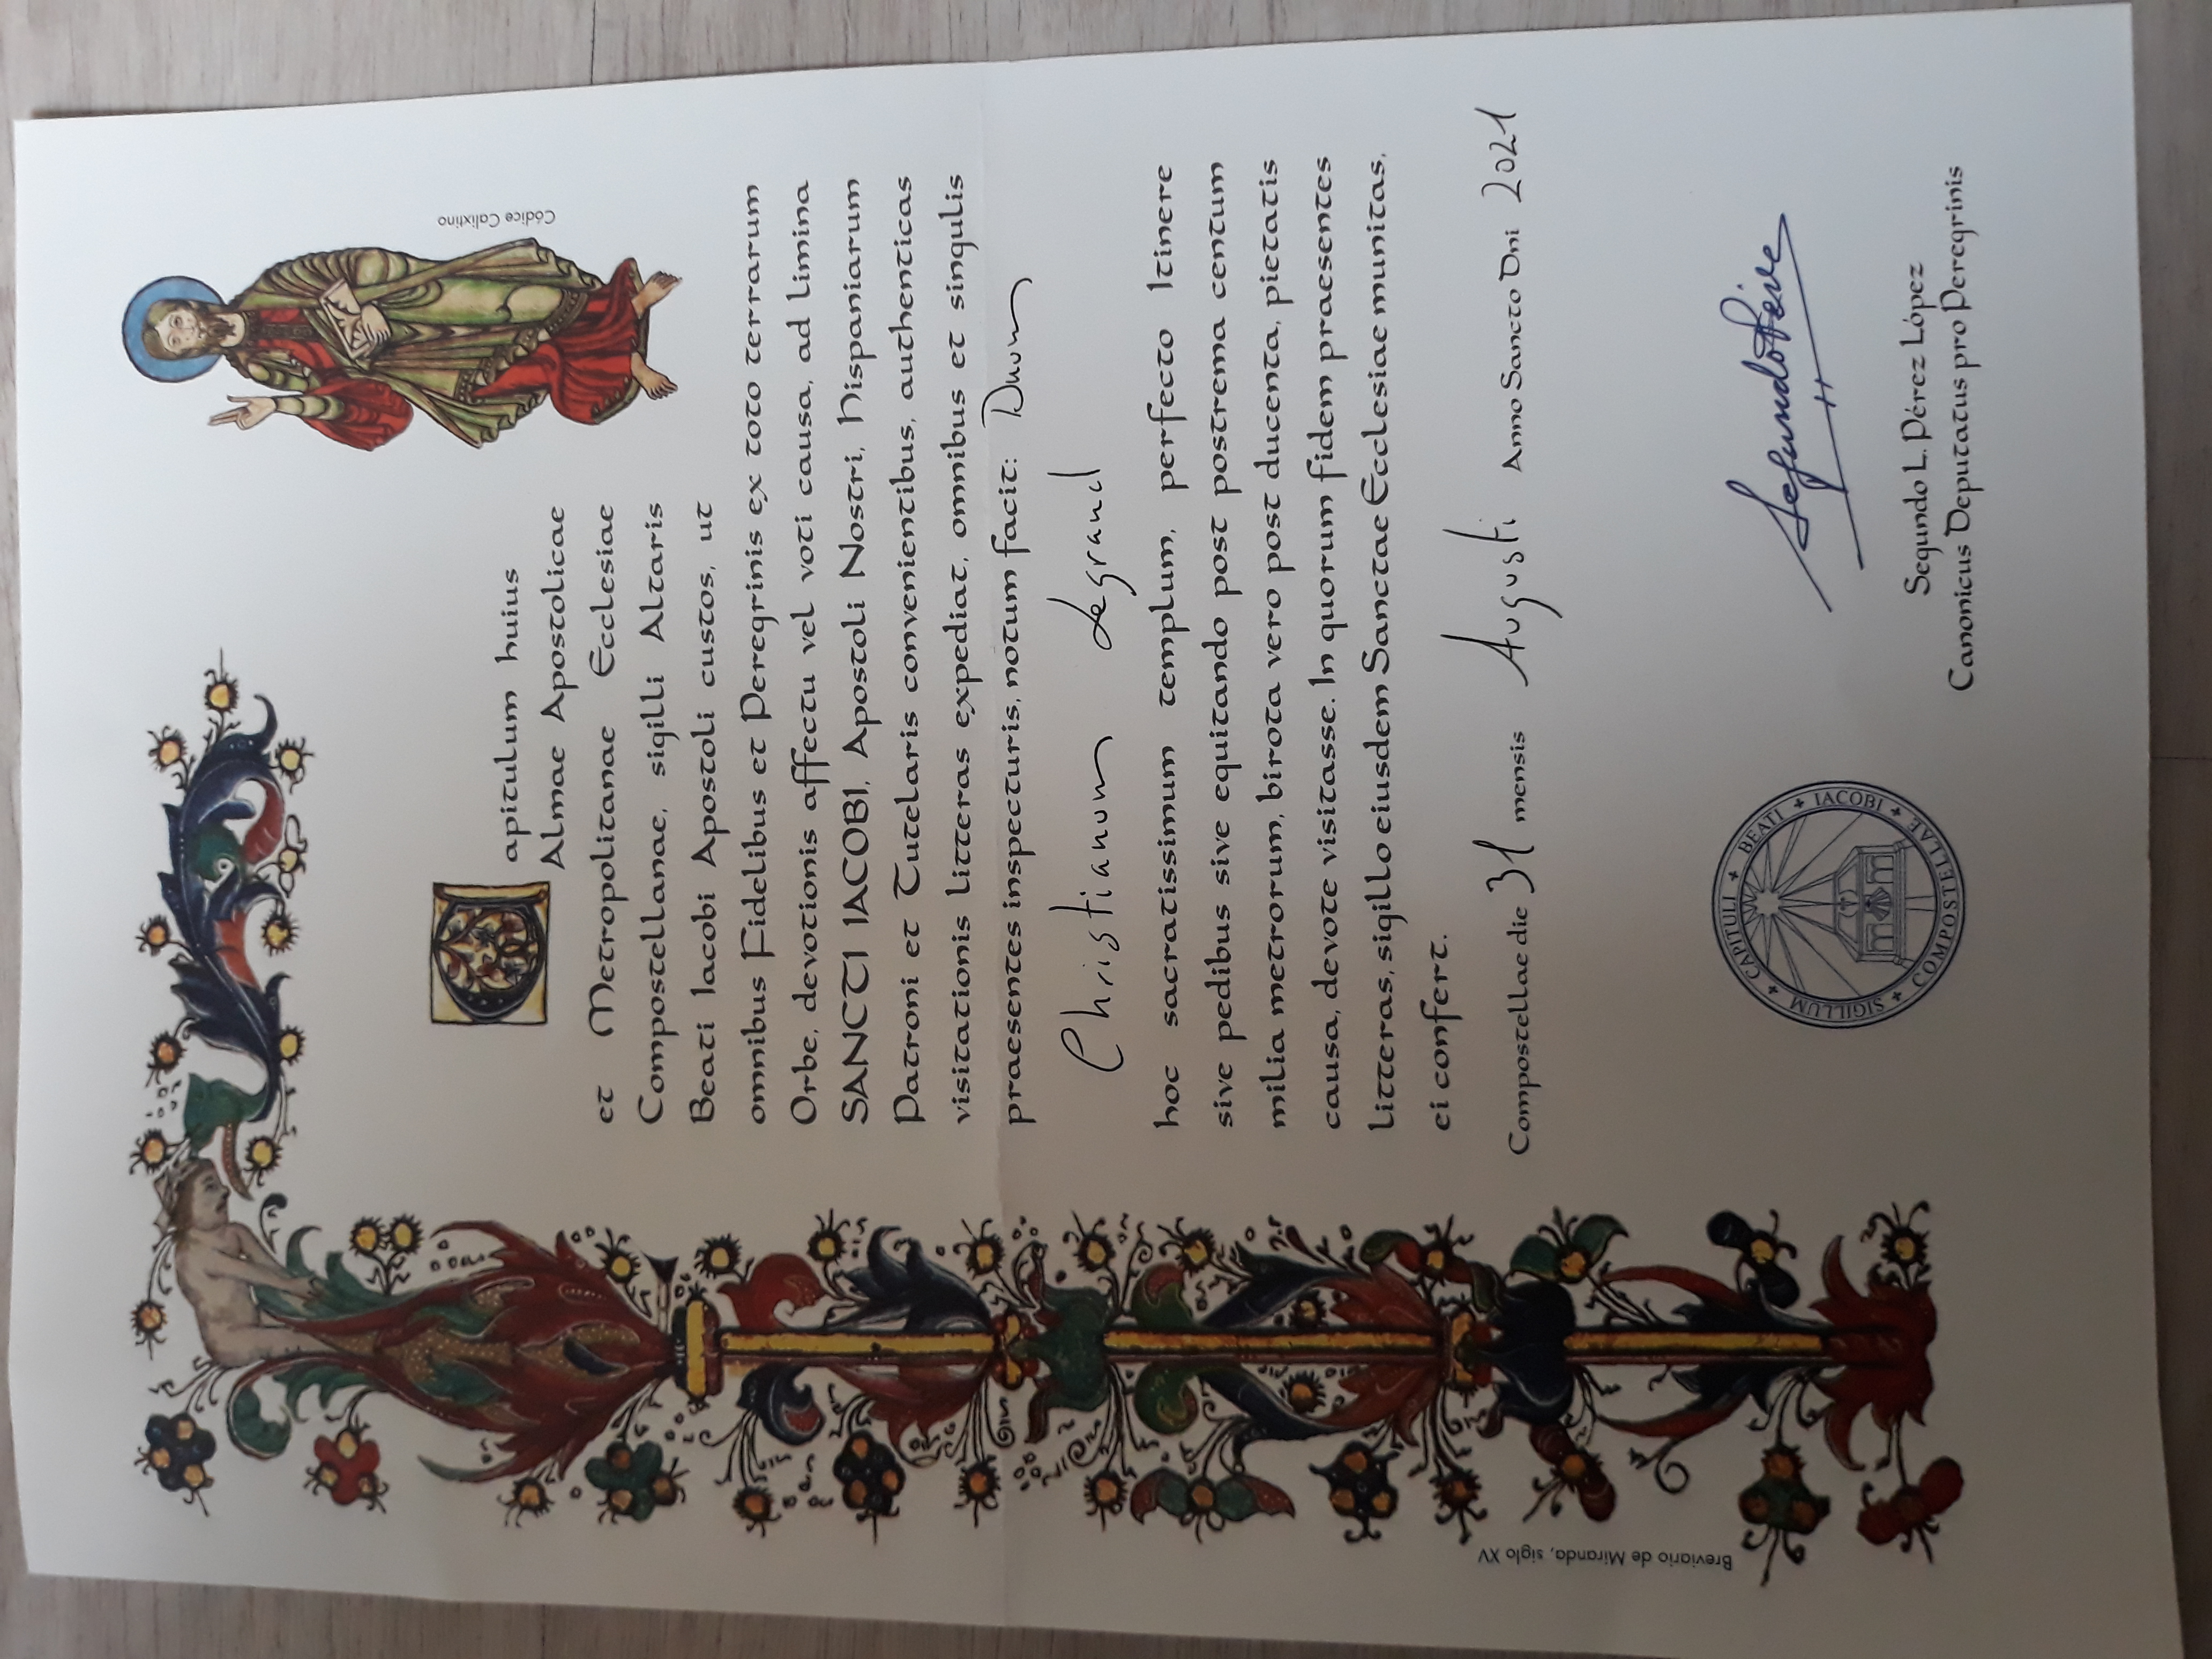 Códice Calixtino
Capitulum huius
Almae Apostolicae
et Metropolitanae Ecclesiae
Compostellanae, sigilli Altaris
Beati Iacobi Apostoli custos, ut
omnibus Fidelibus et Peregrinis ex toto terrarum
Orbe, devotionis affectu vel voti causa, ad limina
SANCTI IACOBI, Apostoli Nostri, Hispaniarum
Patroni et Tutelaris convenientibus, authenticas
visitationis litteras expediat, omnibus et singulis
praesentes inspecturis, notum facit: Dnum
Christianum Legrand
hoc sacratissimum templum, perfecto Itinere
sive pedibus sive equitando post postrema centum
milia metrorum, birota vero post ducenta, pietatis
causa, devote visitasse. In quorum fidem praesentes
litteras, sigillo eiusdem Sanctae Ecclesiae munitas,
ei confert.
Compostellae die 31 mensis Augusti Anno Sancto Dni 2021
SIGILLUM + CAPITULI + BEATI + IACOBI + COMPOSTELLAE +
Segundo L. Pérez López
Canonicus Deputatus pro Peregrinis
Breviario de Miranda, siglo XV